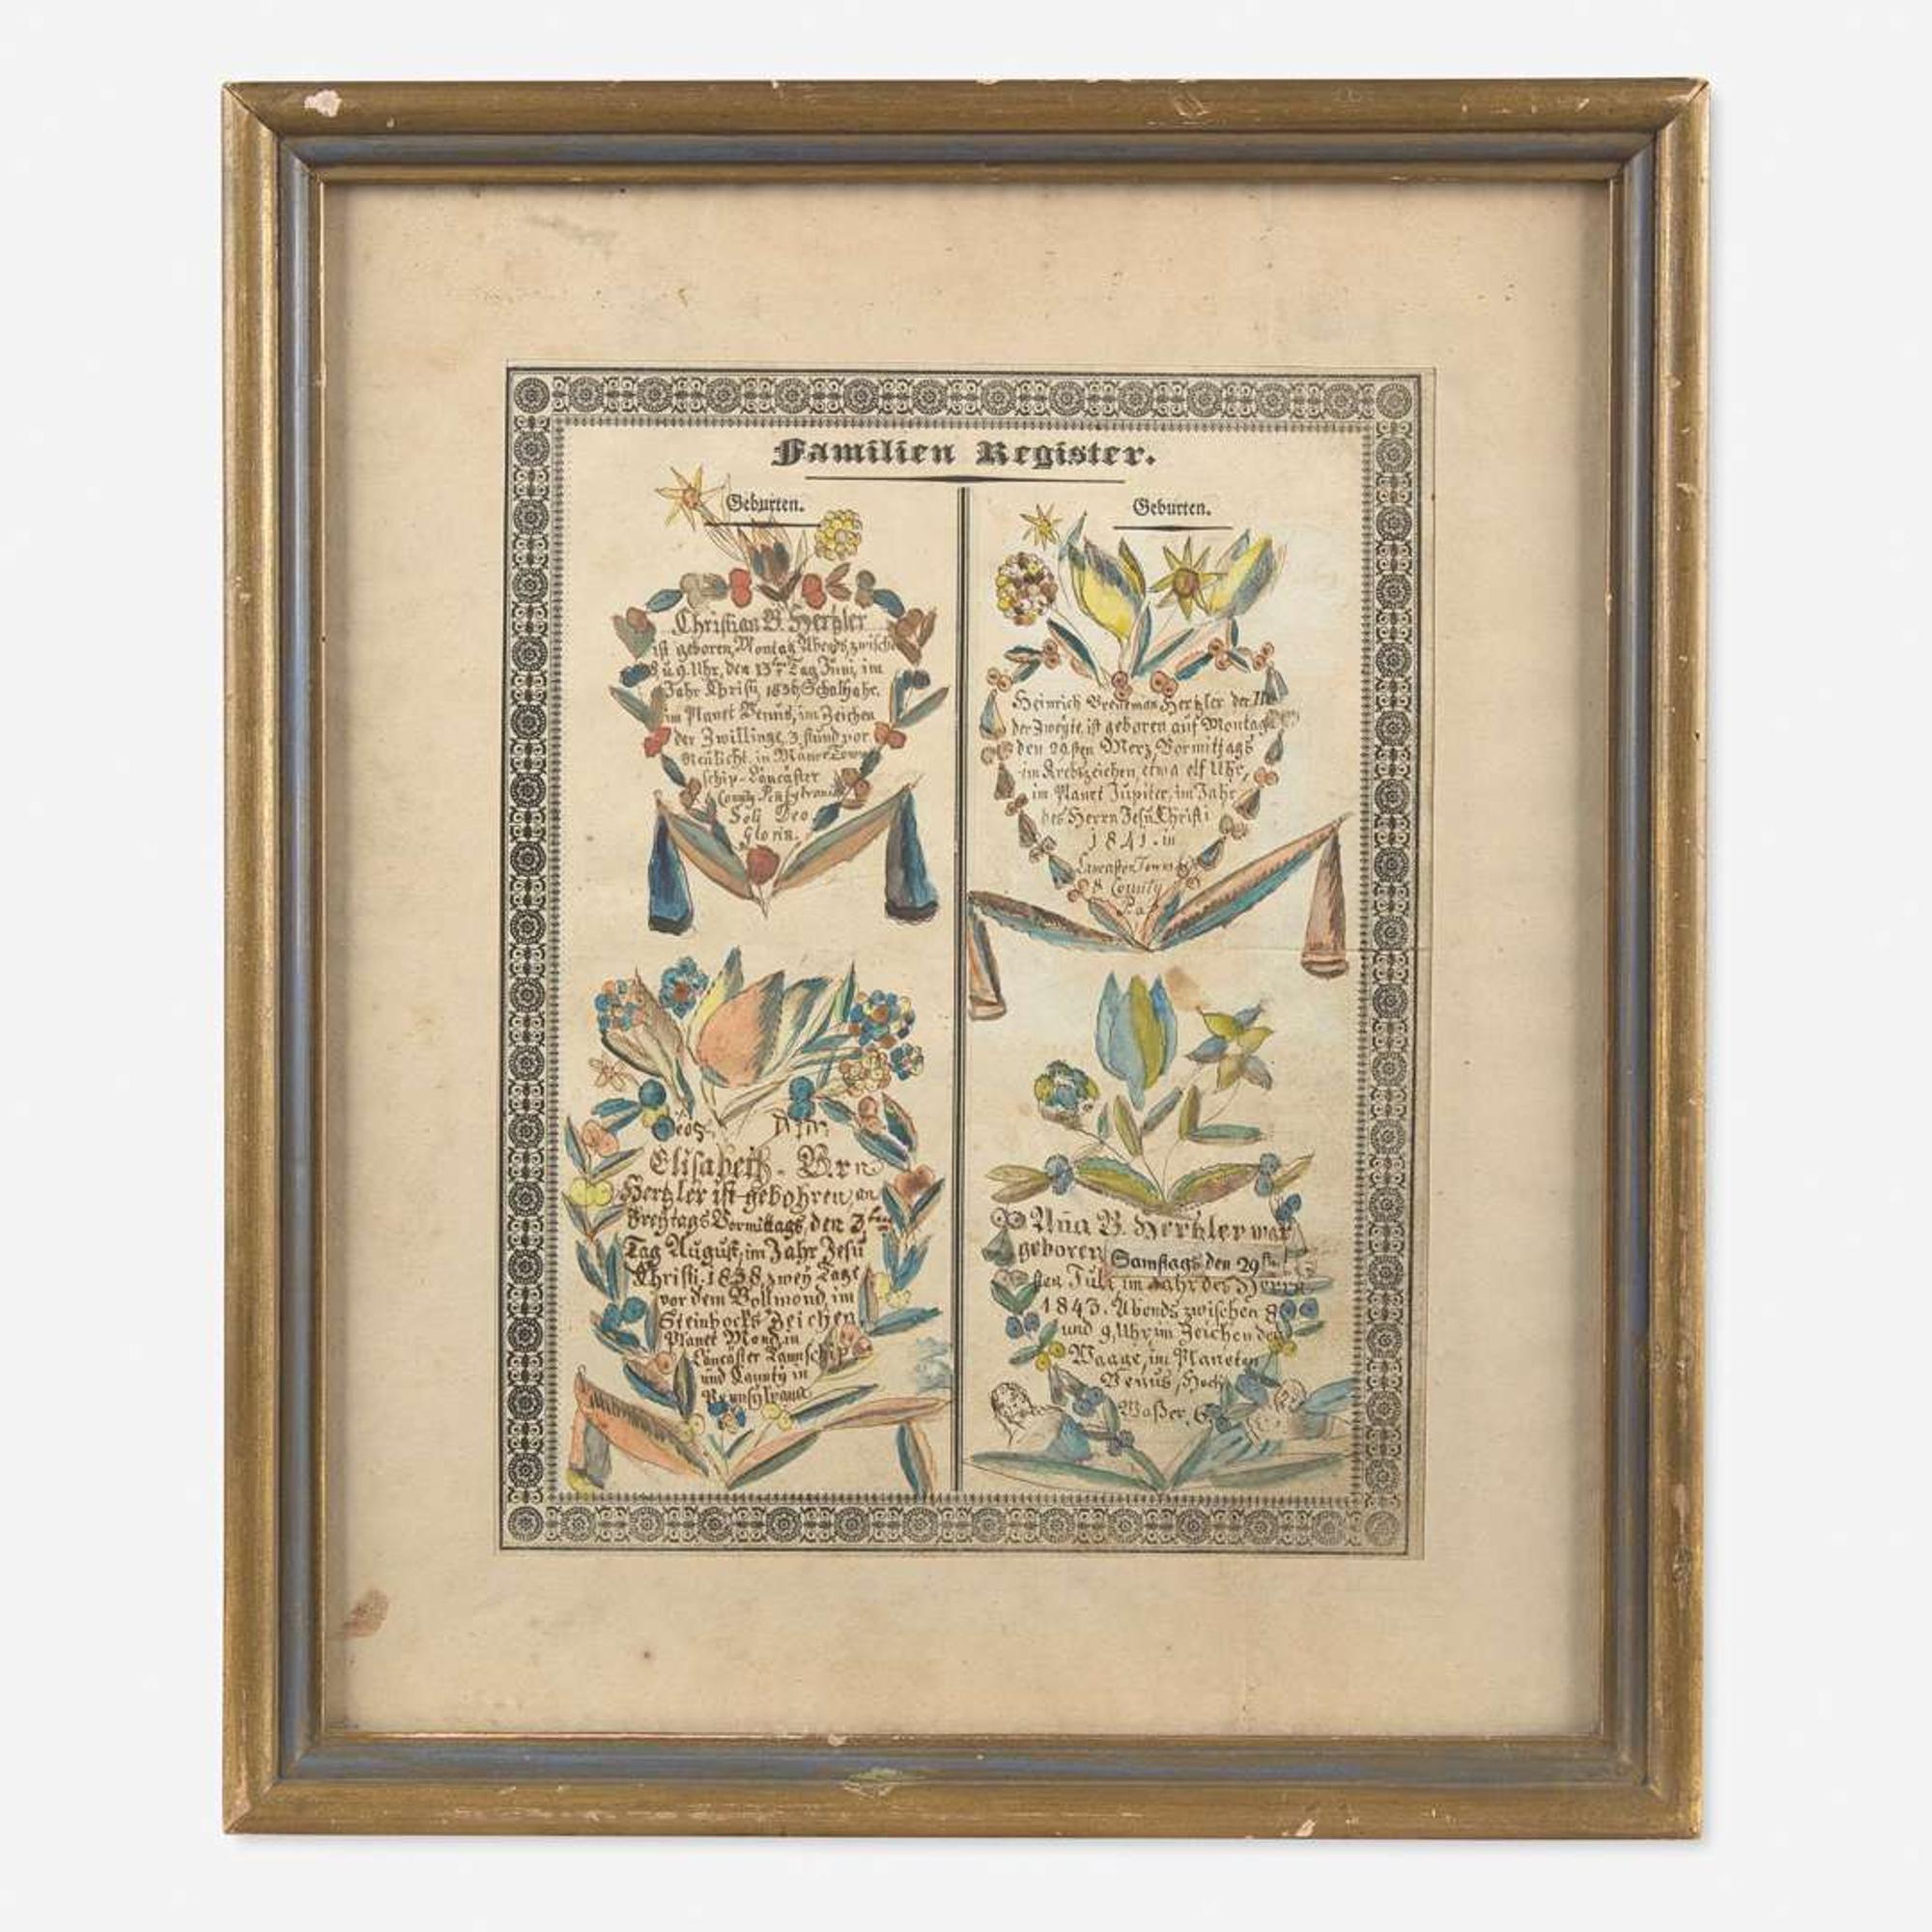 Familien Register.
Geburten.
Christian B. Hertzler
ist geboren, Montag Abends, zwische
8 u. 9. Uhr, den 13ten Tag Juni, im
Jahr Christi, 1836, Schaltjahr,
im Planet Venus, im Zeichen
der Zwillinge, 3, stund vor
Neulicht, in Manor Town
schip Läncäster
County Pensylvania
Soli Deo
Gloria.
Elisabeth B.
Hertzler ist gebohren, an
Freytags Vormittags, den 3ten
Tag August, im Jahr Jesu
Christi, 1838, zwey Tage
vor dem Vollmond, im
Steinbocks Zeichen,
Planet Mond, in
Läncaster Taunschip
und Caunty in
Pennsylvana
Geburten.
Heinrich Breneman Hertzler der
der Zweyte, ist geboren auf Montag
den 29.sten Merz Vormittags
im Krebszeichen, etwa elf Uhr,
im Planet Jupiter, im Jahr
des Herrn Jesu Christi
1841. in
Lancaster Town
County
Pa.
Anna B. Hertzler war
geboren Samstags den 29
sten Juli, im Jahr des Herrn
1843. Abends zwischen 8
und 9, Uhr, im Zeichen der
Waage, im Planeten
Venus, Hoch
Waßer, 6.